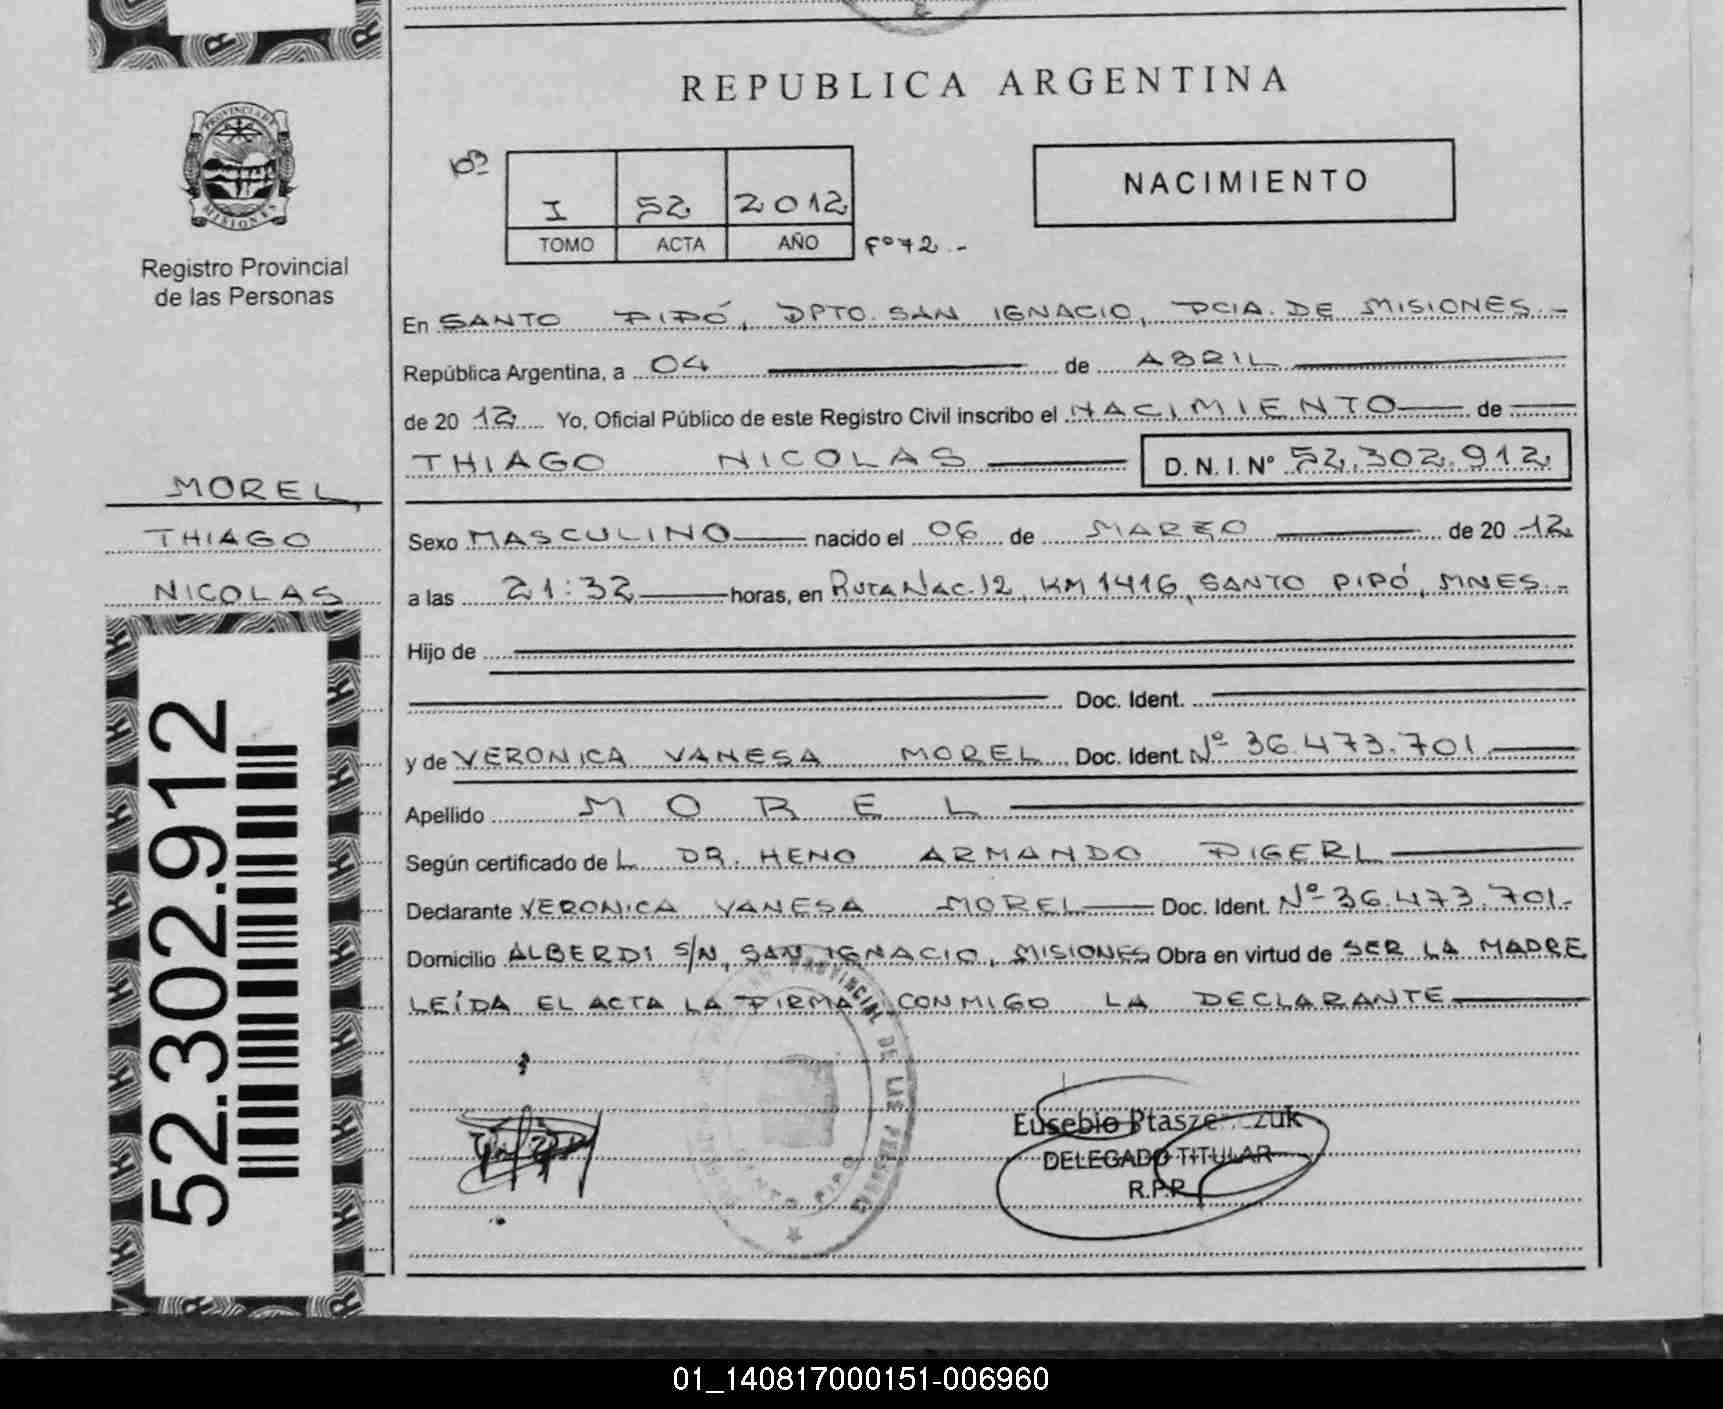 REPUBLICA ARGENTINA
NACIMIENTO
I 52 2012
TOMO ACTA AÑO Fº 72.-
PROVINCIA DE MISIONES
Registro Provincial
de las Personas
En SANTO PIPÓ, DPTO. SAN IGNACIO, PCIA. DE MISIONES.-
República Argentina, a 04 de ABRIL
de 2012 Yo, Oficial Público de este Registro Civil inscribo el NACIMIENTO de
THIAGO NICOLAS D.N.I. Nº 52.302.912
MOREL,
THIAGO
NICOLAS
Sexo MASCULINO nacido el 06 de MARZO de 2012
a las 21:32 horas, en RUTA NAC. 12, KM 1416, SANTO PIPÓ, MNES.-
Hijo de
Doc. Ident.
y de VERONICA VANESA MOREL Doc. Ident. Nº 36.473.701
Apellido MOREL
Según certificado de L DR. HENO ARMANDO PIGERL
Declarante VERONICA VANESA MOREL Doc. Ident. Nº 36.473.701.-
Domicilio ALBERDI S/N, SAN IGNACIO, MISIONES Obra en virtud de SER LA MADRE
LEÍDA EL ACTA LA FIRMA CONMIGO LA DECLARANTE
52.302.912
PROVINCIAL DE LAS PERSONAS
SANTO PIPO
Eusebio
DELEGADO TITULAR
R.P.P.
01_140817000151-006960